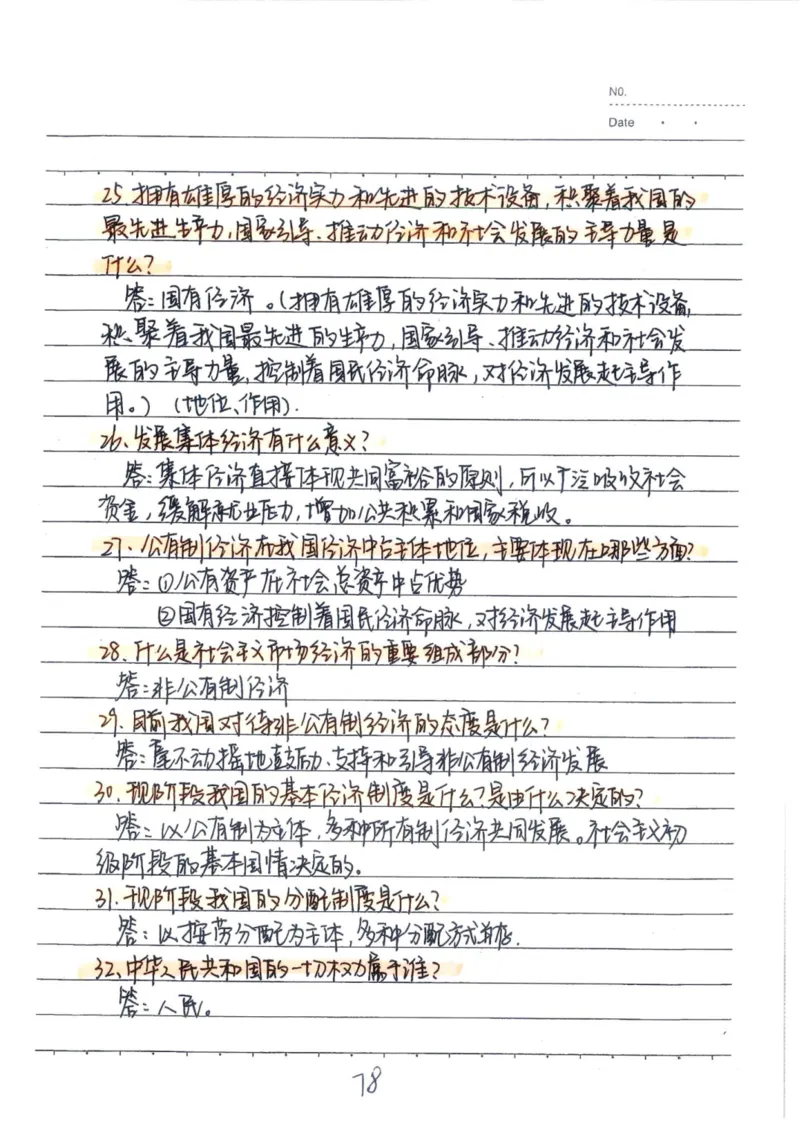 NO.
Date
25.拥有雄厚的经济实力和先进的技术设备,积聚着我国的
最先进生产力,国家引导、推动经济和社会发展的主导力量是
什么?
答:国有经济。(拥有雄厚的经济实力和先进的技术设备,
积聚着我国最先进的生产力,国家引导、推动经济和社会发
展的主导力量,控制着国民经济命脉,对经济发展起主导作
用。)(地位、作用).
26、发展集体经济有什么意义?
答:集体经济直接体现共同富裕的原则,可以广泛吸收社会
资金,缓解就业压力,增加公共积累和国家税收。
27、公有制经济在我国经济中占主体地位,主要体现在哪些方面?
答:①公有资产在社会总资产中占优势
②国有经济控制着国民经济命脉,对经济发展起主导作用
28.什么是社会主义市场经济的重要组成部分?
答:非公有制经济
29.目前我国对待非公有制经济的态度是什么?
答:毫不动摇地鼓励、支持和引导非公有制经济发展
30.现阶段我国的基本经济制度是什么?是由什么决定的?
答:以公有制为主体,多种所有制经济共同发展。社会主义初
级阶段的基本国情决定的。
31.现阶段我国的分配制度是什么?
答:以按劳分配为主体,多种分配方式并存.
32、中华人民共和国的一切权力属于谁?
答:人民。
78